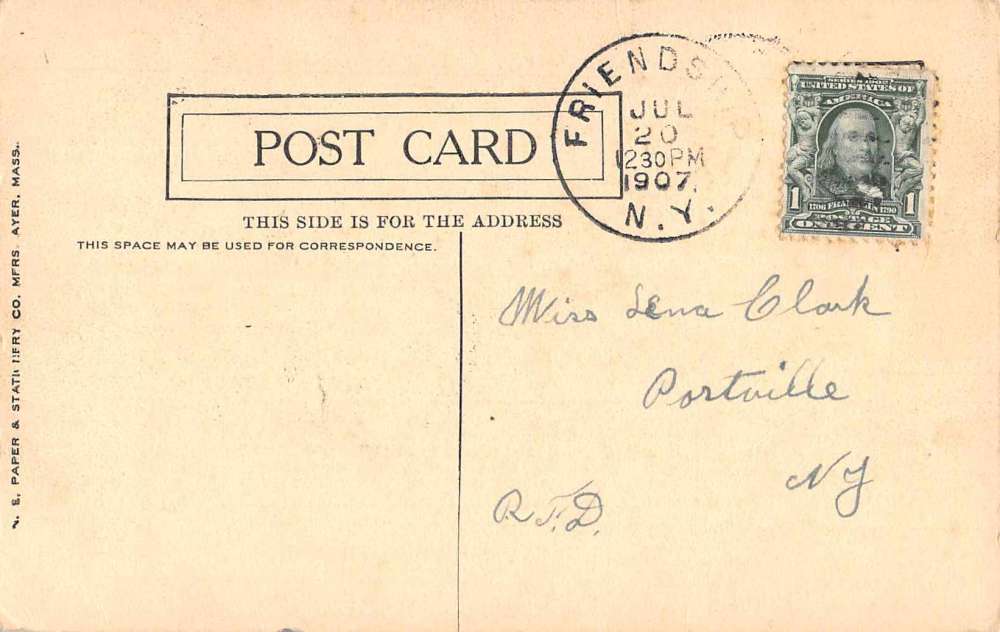 POST CARD
THIS SIDE IS FOR THE ADDRESS
THIS SPACE MAY BE USED FOR CORRESPONDENCE.
PAPER & CO. MFRS. AYER, MASS.
JUL
20
1230PM
1907.
N.Y.
SERIES 1902
UNITED STATES OF
AMERICA
1 1706 FRANKLIN 1790 1
POSTAGE
ONE CENT
Miss Lena Clark
Portville
NY
R.F.D.